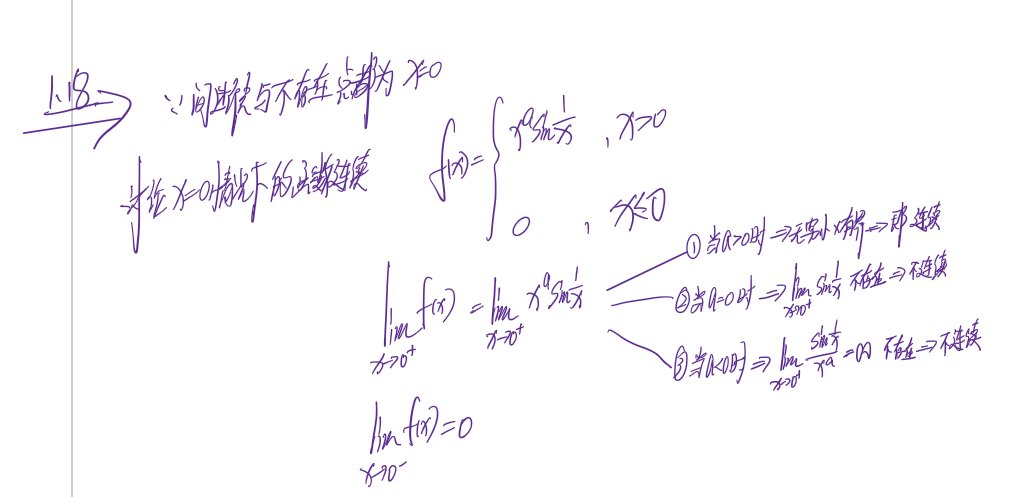 1.18
∵ 间断点与不存在点都为 x=0
讨论 x=0 情况下的函数连续
f(x)= { x^a sin 1/x , x>0
0 , x≤0
lim x→0⁺ f(x) = lim x→0⁺ x^a sin 1/x
① 当a>0时 ⇒ 无穷小×有界 ⇒ 即连续
② 当a=0时 ⇒ lim x→0⁺ sin 1/x 不存在 ⇒ 不连续
③ 当a<0时 ⇒ lim x→0⁺ sin 1/x / x^a = ∞ 不存在 ⇒ 不连续
lim x→0⁻ f(x) = 0